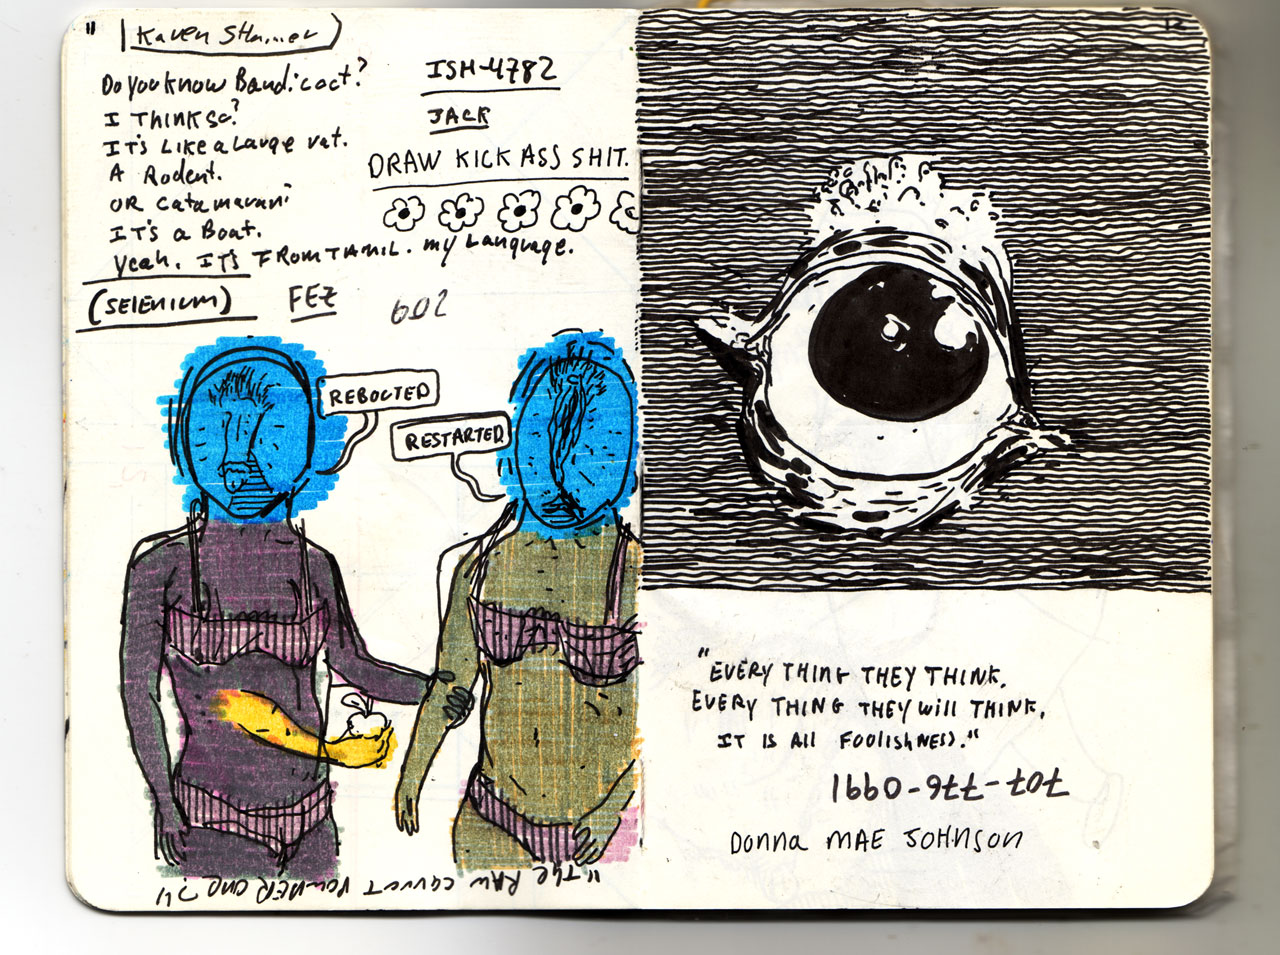 11
Karen
Do you know Bandicoot?
I THINK So?
IT'S LIKE a Large rat.
A Rodent.
OR Catamaran?
IT'S a Boat.
Yeah. IT'S FROM TAMIL. my Language.
ISH-4782
JACK
DRAW KICK ASS SHIT.
(SELENIUM)
FEZ
602
REBOOTED
RESTARTED
"THE RAW carrot POWDER one?"
12
"EVERY THING THEY THINK.
EVERY THING THEY will THINK,
IT IS All FOOlISHNESS."
707-776-0991
Donna MAE JOHNSON